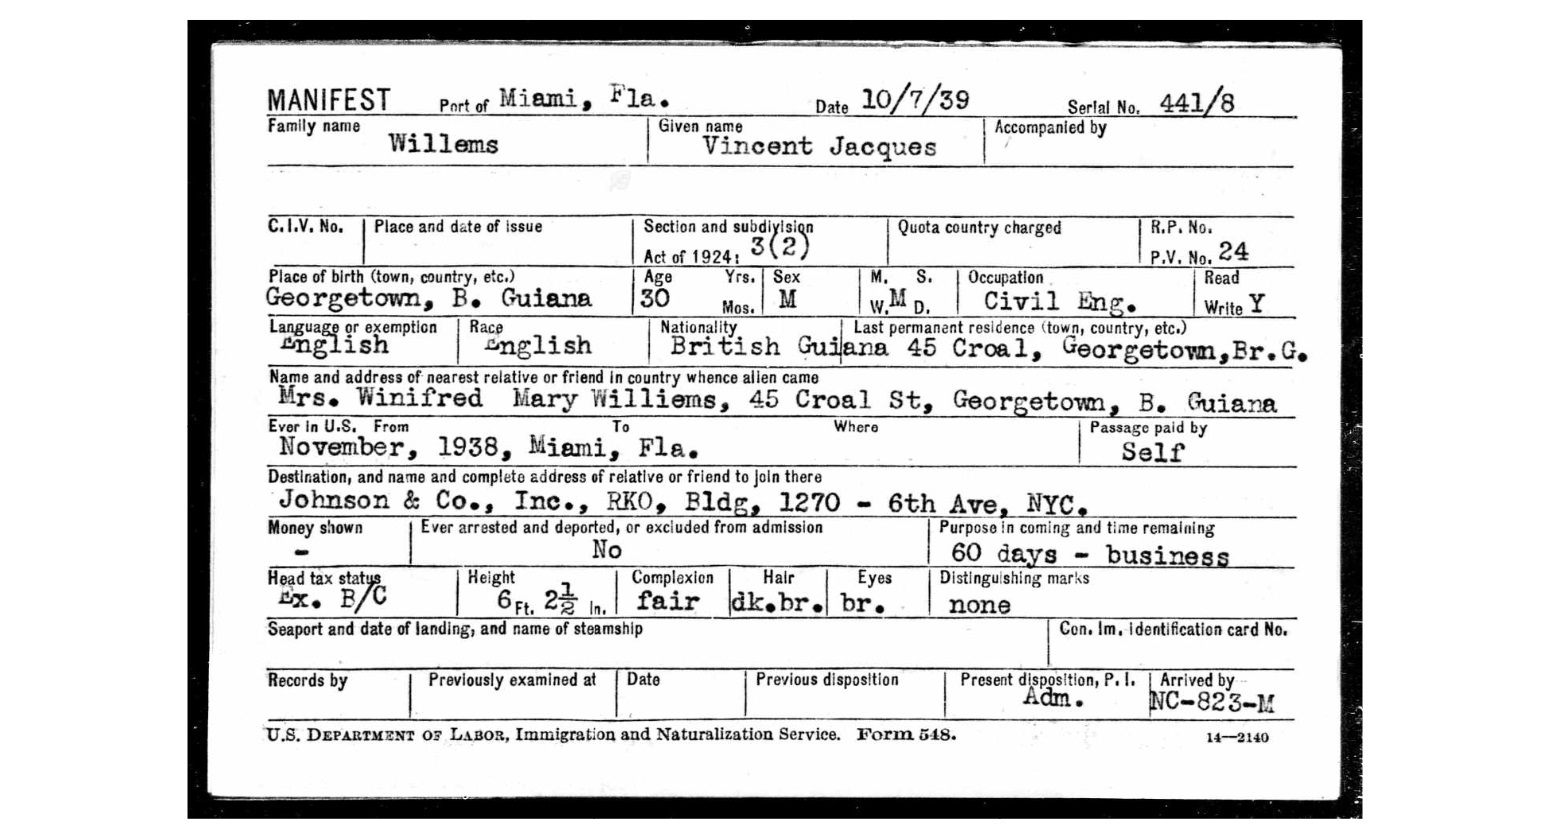 MANIFEST Port of Miami, Fla. Date 10/7/39 Serial No. 441/8
Family name Given name Accompanied by
Willems Vincent Jacques
C.I.V. No. Place and date of issue Section and subdivision Quota country charged R.P. No.
Act of 1924: 3(2) P.V. No. 24
Place of birth (town, country, etc.) Age Yrs. Sex M. S. Occupation Read
Georgetown, B. Guiana 30 Mos. M W. M D. Civil Eng. Write Y
Language or exemption Race Nationality Last permanent residence (town, country, etc.)
English English British Guiana 45 Croal, Georgetown, Br.G.
Name and address of nearest relative or friend in country whence alien came
Mrs. Winifred Mary Williems, 45 Croal St, Georgetown, B. Guiana
Ever in U.S. From To Where Passage paid by
November, 1938, Miami, Fla. Self
Destination, and name and complete address of relative or friend to join there
Johnson & Co., Inc., RKO, Bldg, 1270 - 6th Ave, NYC.
Money shown Ever arrested and deported, or excluded from admission Purpose in coming and time remaining
- No 60 days - business
Head tax status Height Complexion Hair Eyes Distinguishing marks
Ex. B/C 6 Ft. 2½ In. fair dk.br. br. none
Seaport and date of landing, and name of steamship Con. Im. Identification card No.
Records by Previously examined at Date Previous disposition Present disposition, P. I. Arrived by
Adm. NC-823-M
U.S. DEPARTMENT OF LABOR, Immigration and Naturalization Service. Form 548. 14—2140